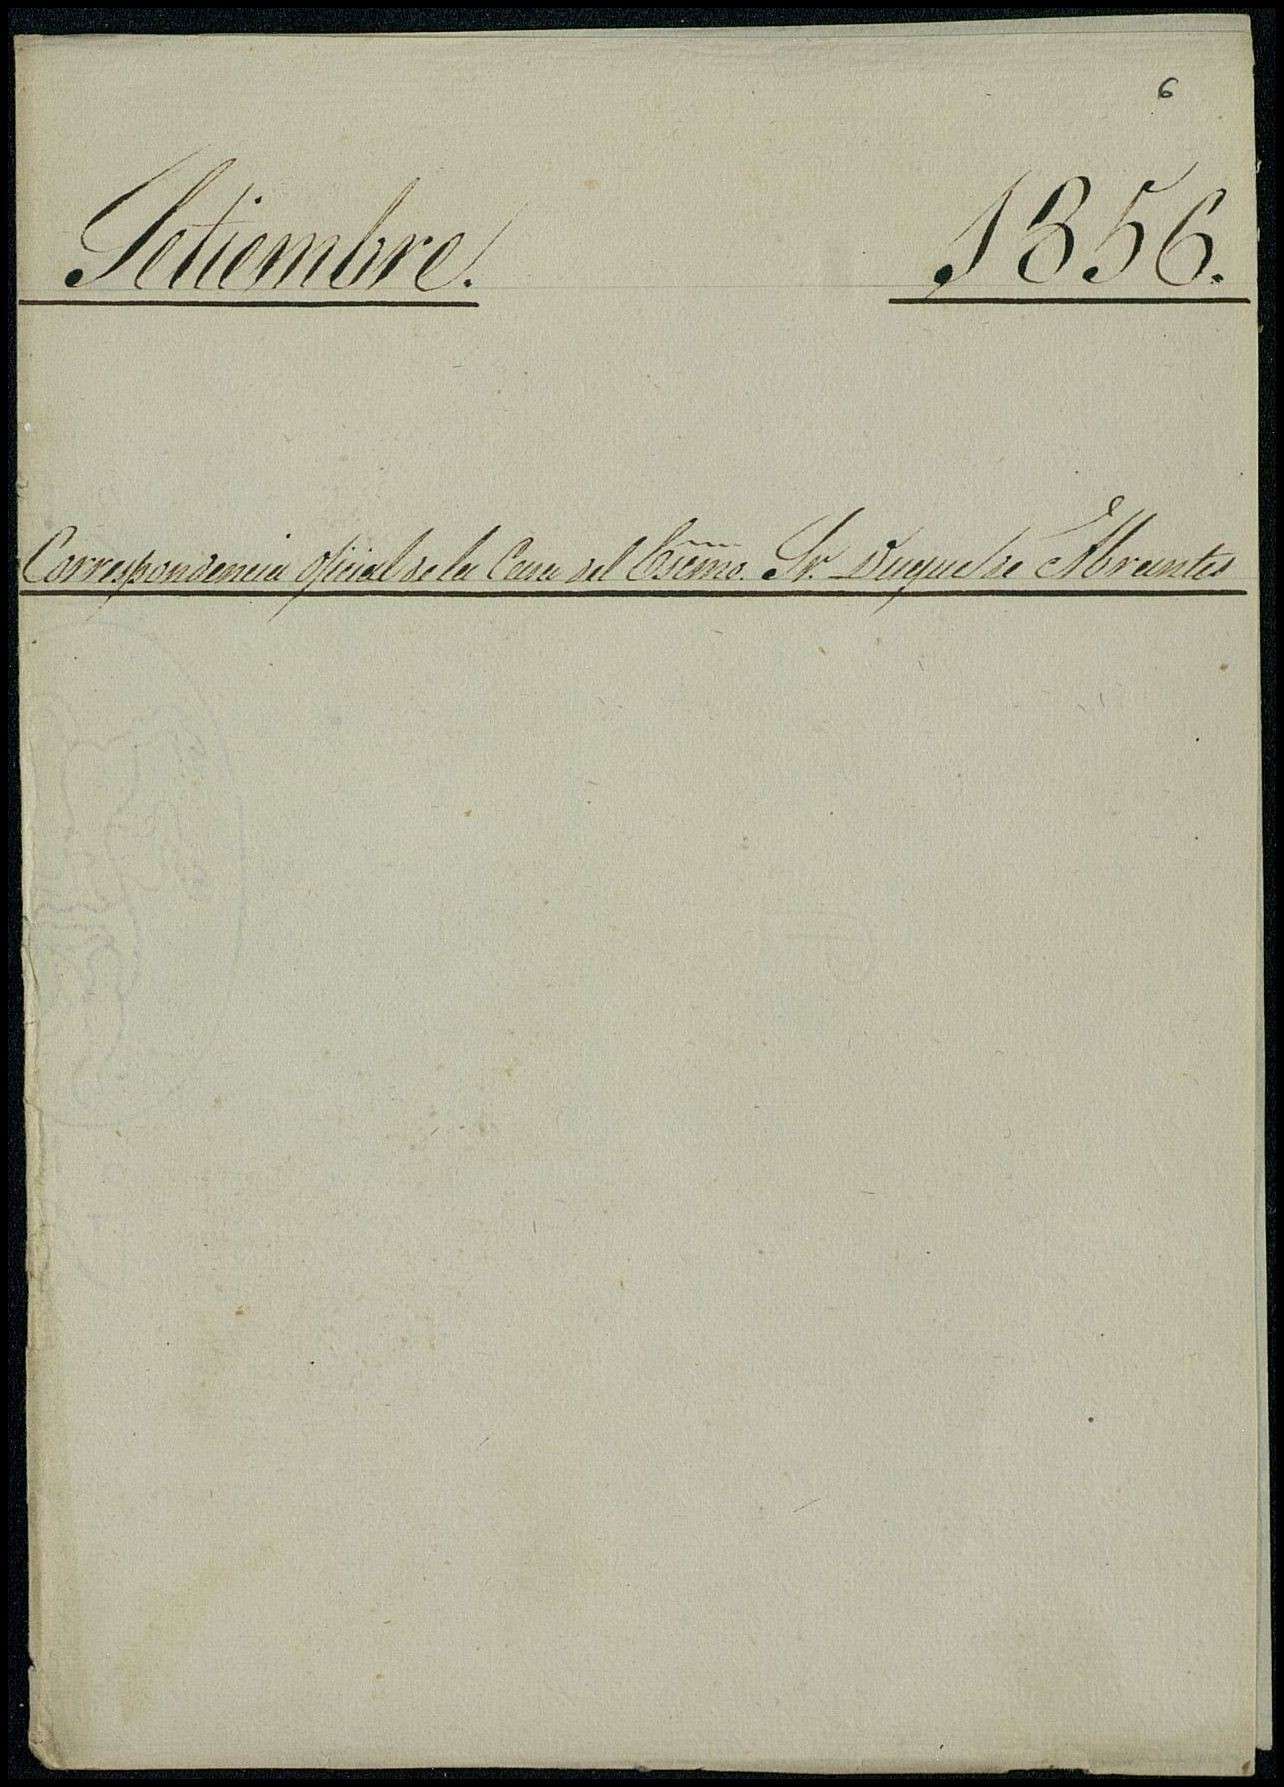 6
Setiembre. 1856.
Correspondencia oficial de la Casa del Escmo. Sr. Duque de Abrantes